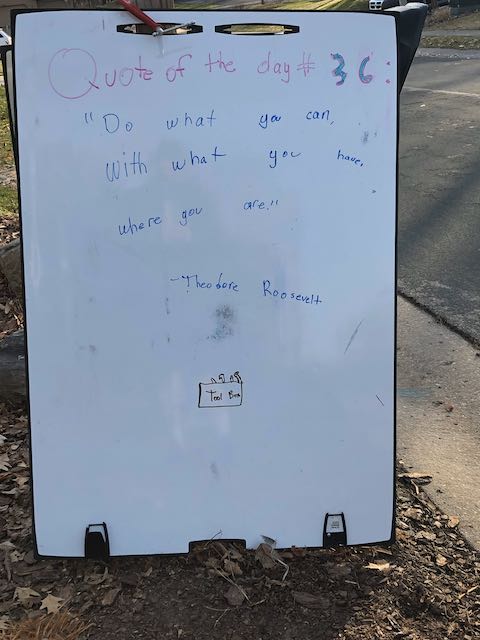 Quote of the day # 36:
"Do what you can,
with what you have,
where you are."
-Theodore Roosevelt
Tool Box